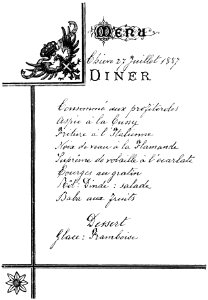 Menu
27 Juillet 1887
DINER
Consommé aux profiteroles
Aspic à la Cussy
Friture à l'Italienne
Noix de veau à la Flamande
Suprême de volaille à l'écarlate
Courges au gratin
Rôt: Dinde: salade
Baba aux fruits
Dessert
Glace: Framboise